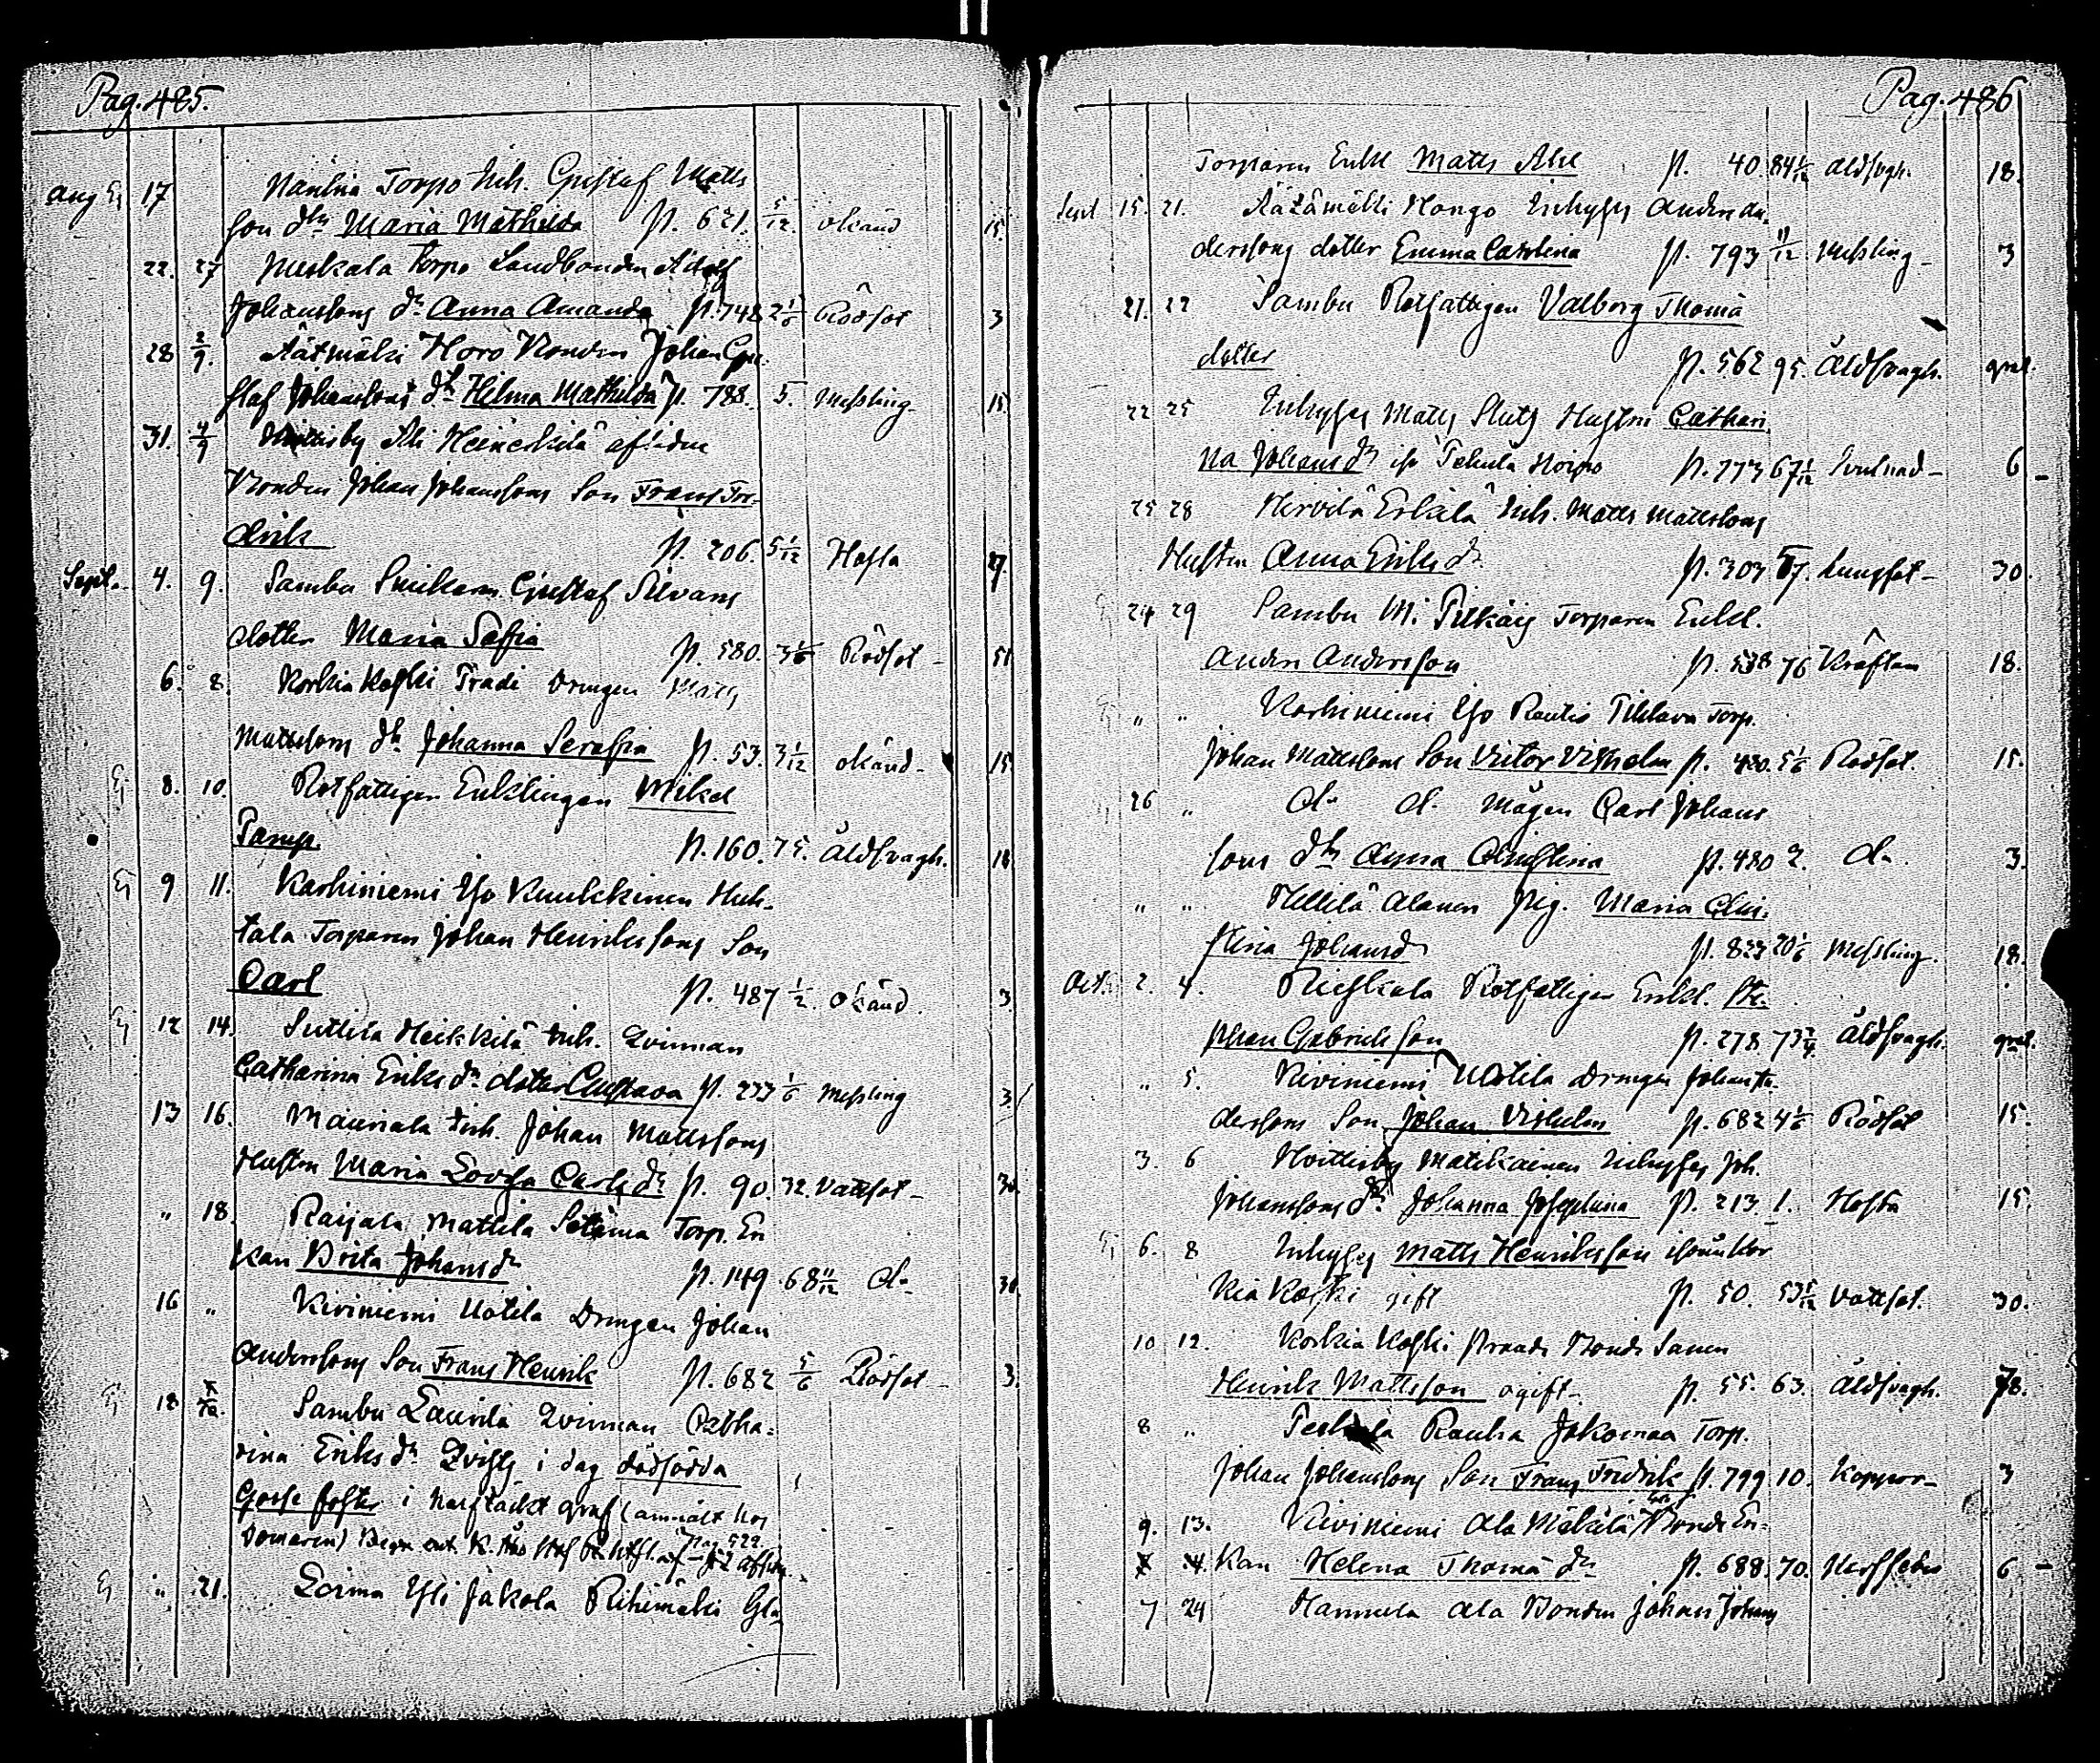 Pag. 485.
Aug 17 Torpo Inh. Gustaf Matts
son dtr Maria Mathilda p. 621. 5/12. okänd 15.
22. 27 Torpo Landbonden Adolf
Johanssons dr Anna Amanda p. 748 2 1/6 Rödsot 3
28 2/9. Äätmäki Horo Bonden Johan Gu-
staf Johanssons dr Helma Mathilda p. 788. 5. Messling 15
31. 4/9 Ali Heinikilä afl:idne
Bonden Johan Johanssons Son Frans Fre-
drik p. 206. 5 1/12 Hosta 27.
Sept. 4. 9. Sambu Gustaf Silvans
dotter Maria Saffia p. 580. 3 1/6 Rödsot 51
6. 8. Korkia Koski Pradi Drengen Matts
Mattssons dr Johanna Seraffia p. 53. 3 1/12 okänd 15
8. 10. Rotfattigen Enklingen Mikel
Pamp. p. 160. 75. Äldsvagh. 18
9 11. Karhiniemi Yso Kuulekinen Huh-
tala Torparen Johan Henrikssons Son
Carl p. 487 1/2. okänd. 3.
12 14. Suttila Heikkilä Inh. Qvinnan
Catharina Eriks dr dotter Gustava p. 233 1/6 Messling 3
13 16. Mauriala Inh. Johan Mattssons
Hustru Maria Lovisa Carls dr p. 90. 32. Vattsot 30.
" 18. Raijala Mattila Torp. En
kan Brita Johans dr p. 149. 68 11/12 d:o 30
16 " Kiviniemi Uotila Drengen Johan
Anderssons Son Frans Henrik p. 682 5/6 Rödsot 3.
18 Sambu Laurila Qvinnan Catha-
rina Eriks dr Qvists i dag dödfödda
Gosse foster i graf (anmält hos
Domaren) Pag 522
" 21. Loima Ylli Jakola Riihimäki
Pag. 486
Torparen Enkl Matts Abel p. 40. 84 1/12 Äldsvagh. 18.
Sept 15. 21. Äätämäki Hongo Inhyses Anders An-
derssons dotter Emma Carolina p. 793 11/12 Messling 3
21. 22 Sambu Rotfattigen Valborg Thomä
dotter p. 562 95. Äldsvagh. grat.
22 25 Inhyses Matts Sluts Hustru Cathari
na Johans dr p. 773 67 1/12 6
25 28 Hirvilä Erkilä Inh. Matts Mattssons
Hustru Anna Eriks dr p. 303 57. Lungsot 30.
24 29 Sambu M: Torparen Enkl.
Anders Andersson p. 538 76 Kräftan 18.
" " Karhiniemi Yso Rautio Tiklava Torp.
Johan Mattssons Son Victor Vilhelm p. 480. 5 1/6 Rödsot. 15.
26 " d:o d:o Mågen Carl Johans
sons dtr Anna Christina p. 480 2. d:o 3.
" " Hellilä Alanen Pig. Maria Chri-
stina Johansd p. 823 20 1/6 Messling. 18.
Oct. 2. 4. Rieskala Rotfattigen Enkl. Ste-
phan Gabrielsson p. 278 73 3/4. Äldsvagh. grat.
" 5. Kiviniemi Uotila Drengen Johan An-
derssons Son Johan Vilhelm p. 682 4 1/6 Rödsot 15.
3. 6 Hvittisby Matikainen Inhyses Joh.
Johanssons dr Johanna Josephina p. 213. 1. Hosta 15
6. 8 Inhyses Matts Henriksson Kor
kia Koski gift p. 50. 53 5/12 Vattsot. 30.
10 12. Korkia Koski Praadi Bonde Sonen
Henrik Mattsson ogift p. 55. 63. Äldsvagh. 78.
8 " Rauha Jokomaa Torp.
Johan Johanssons Son Frans Fredrik p. 799 10. Koppor 3
9. 13. Kiviniemi Ala Mäkilä Bonde En-
kan Helena Thomä dr p. 688. 70. 6
7 24 Hannula Ala Bonden Johan Johans